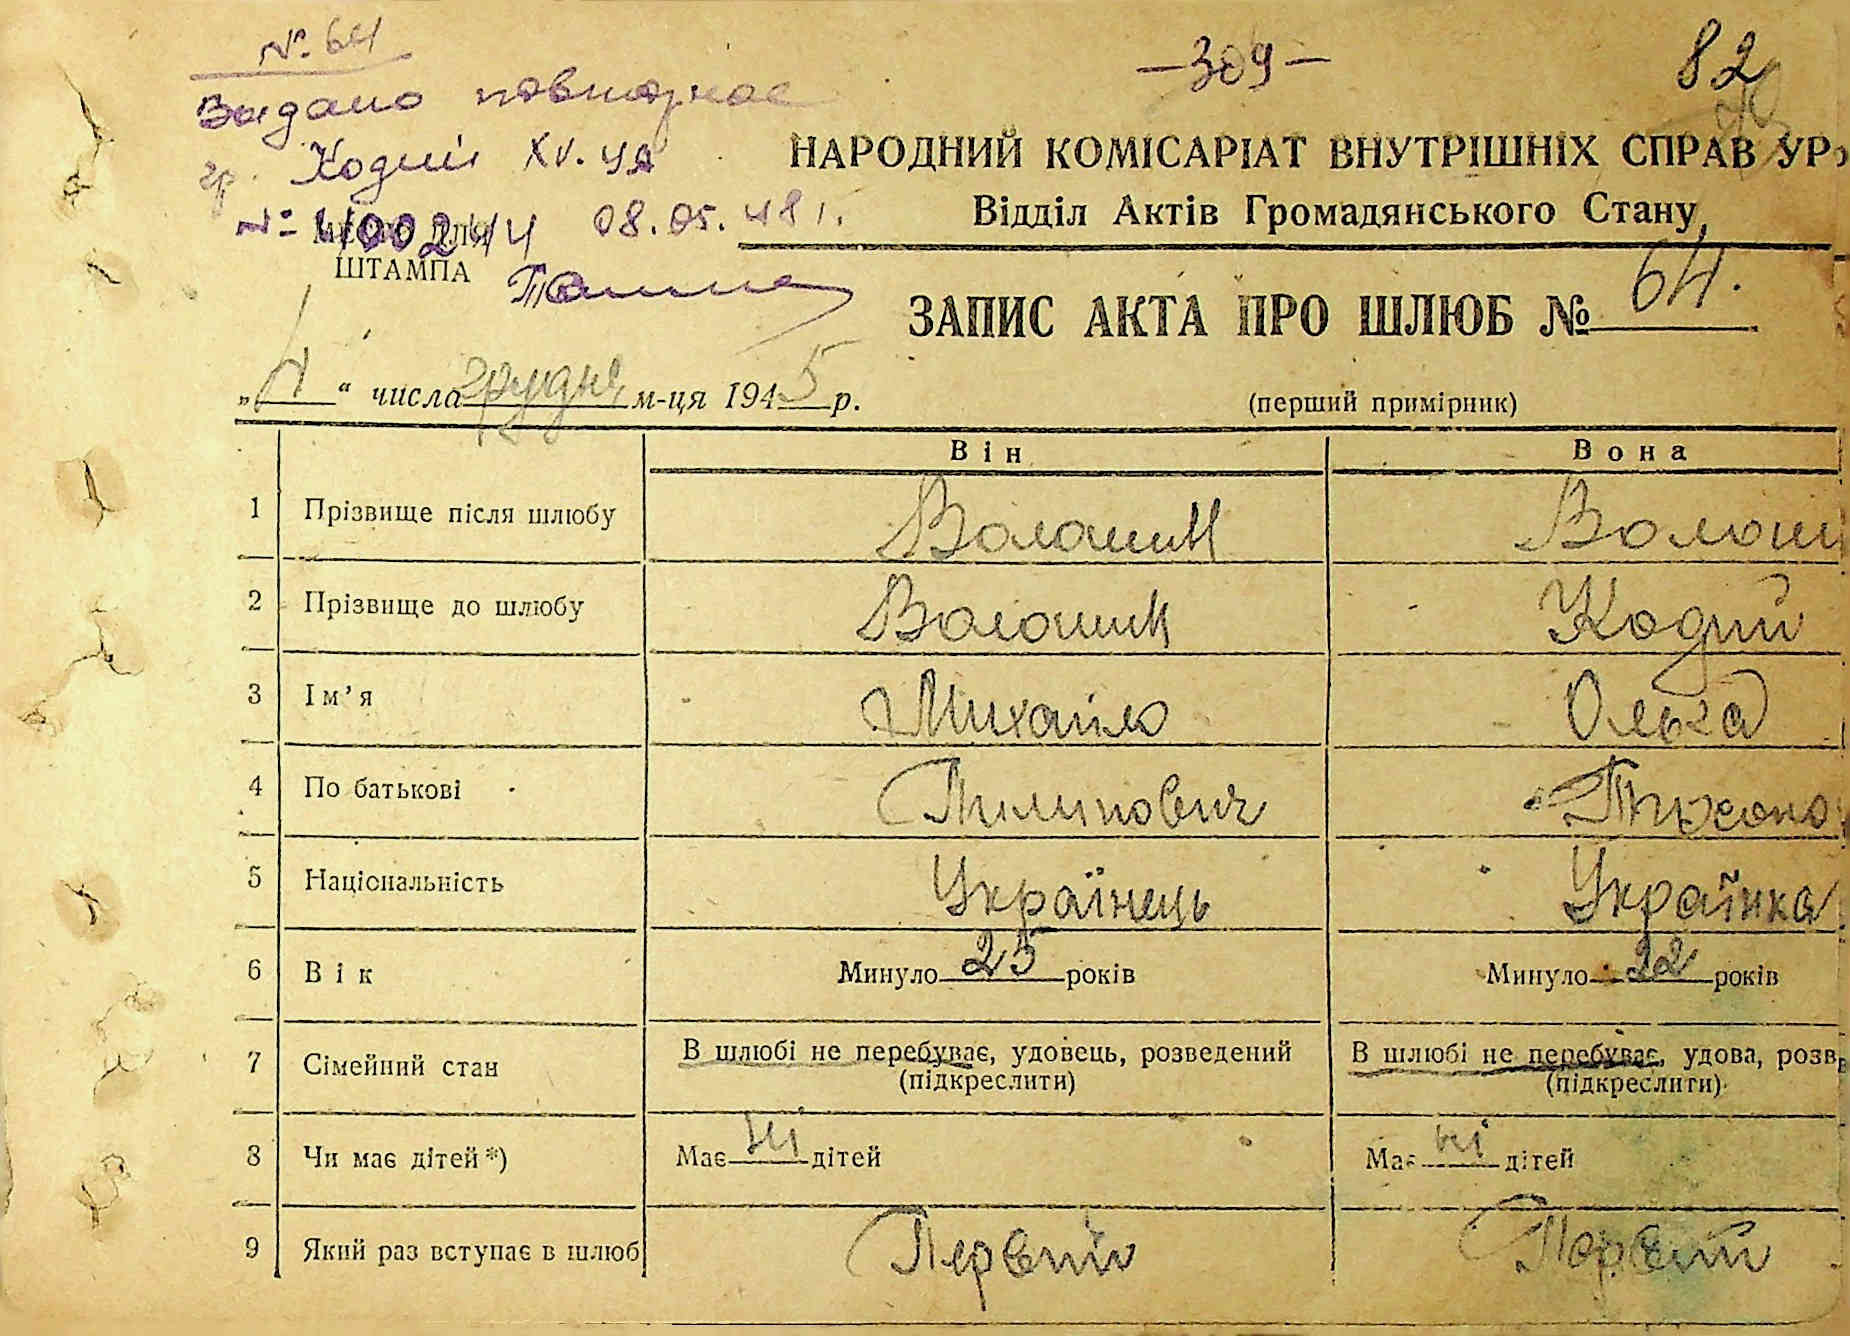 № 64
Видано повторное
гр. Кодий XV. УЯ
№ 400244 08.05.48 г.
— 309 —
82
НАРОДНИЙ КОМІСАРІАТ ВНУТРІШНІХ СПРАВ УР
Відділ Актів Громадянського Стану
ШТАМПА
ЗАПИС АКТА ПРО ШЛЮБ № 64.
„4“ числа грудня м-ця 1945 р.
(перший примірник)
Він Вона
1 Прізвище після шлюбу Волошин Волоши
2 Прізвище до шлюбу Волошин Кодий
3 Ім’я Михайло Ольга
4 По батькові Пилипович Тихоно
5 Національність Українець Українка
6 Вік Минуло 25 років Минуло 22 років
7 Сімейний стан В шлюбі не перебуває, удовець, розведений В шлюбі не перебуває, удова, розв
(підкреслити) (підкреслити)
8 Чи має дітей*) Має ні дітей Має ні дітей
9 Який раз вступає в шлюб Первий Первий